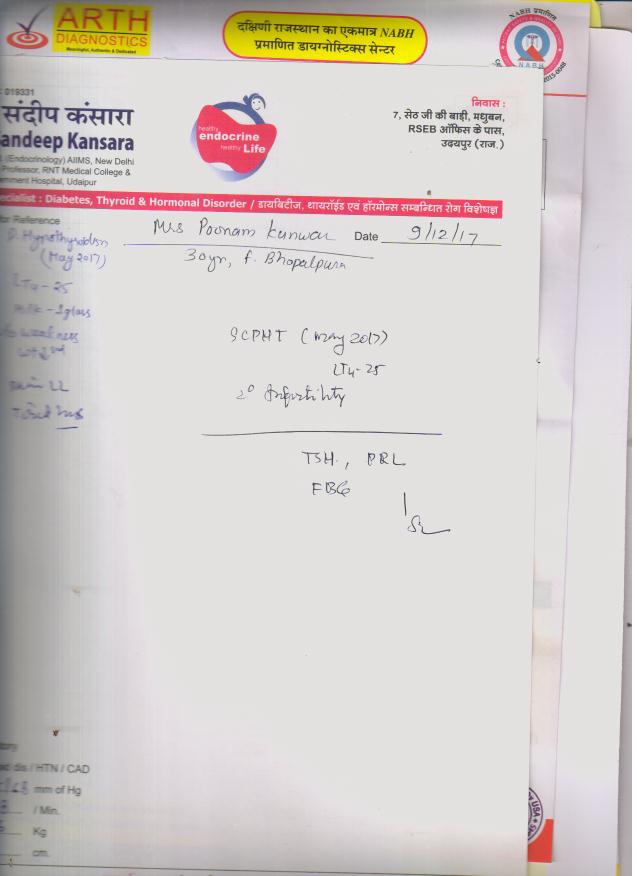 ARTH
DIAGNOSTICS
Meaningful, Authentic & Dedicated
दक्षिणी राजस्थान का एकमात्र NABH
प्रमाणित डायग्नोस्टिक्स सेन्टर
NABH प्रमाणित
NABH
: 019331
संदीप कंसारा
andeep Kansara
(Endocrinology) AIIMS, New Delhi
Professor, RNT Medical College &
ernment Hospital, Udaipur
healthy
endocrine
healthy Life
निवास :
7, सेठ जी की बाड़ी, मधुबन,
RSEB ऑफिस के पास,
उदयपुर (राज.)
ecialist : Diabetes, Thyroid & Hormonal Disorder / डायबिटीज, थायरॉईड एवं हॉरमोन्स सम्बन्धित रोग विशेषज्ञ
or Reference
Mrs Poonam Kunwar Date 9/12/17
30yr, f. Bhopalpura
(May 2017)
LT4 - 25
Milk - 1glass
weakness
SCPHT (May 2017)
LT4-25
2° Infertility
TSH., PRL
FBG
ory
dis / HTN / CAD
mm of Hg
/ Min.
Kg
cm.